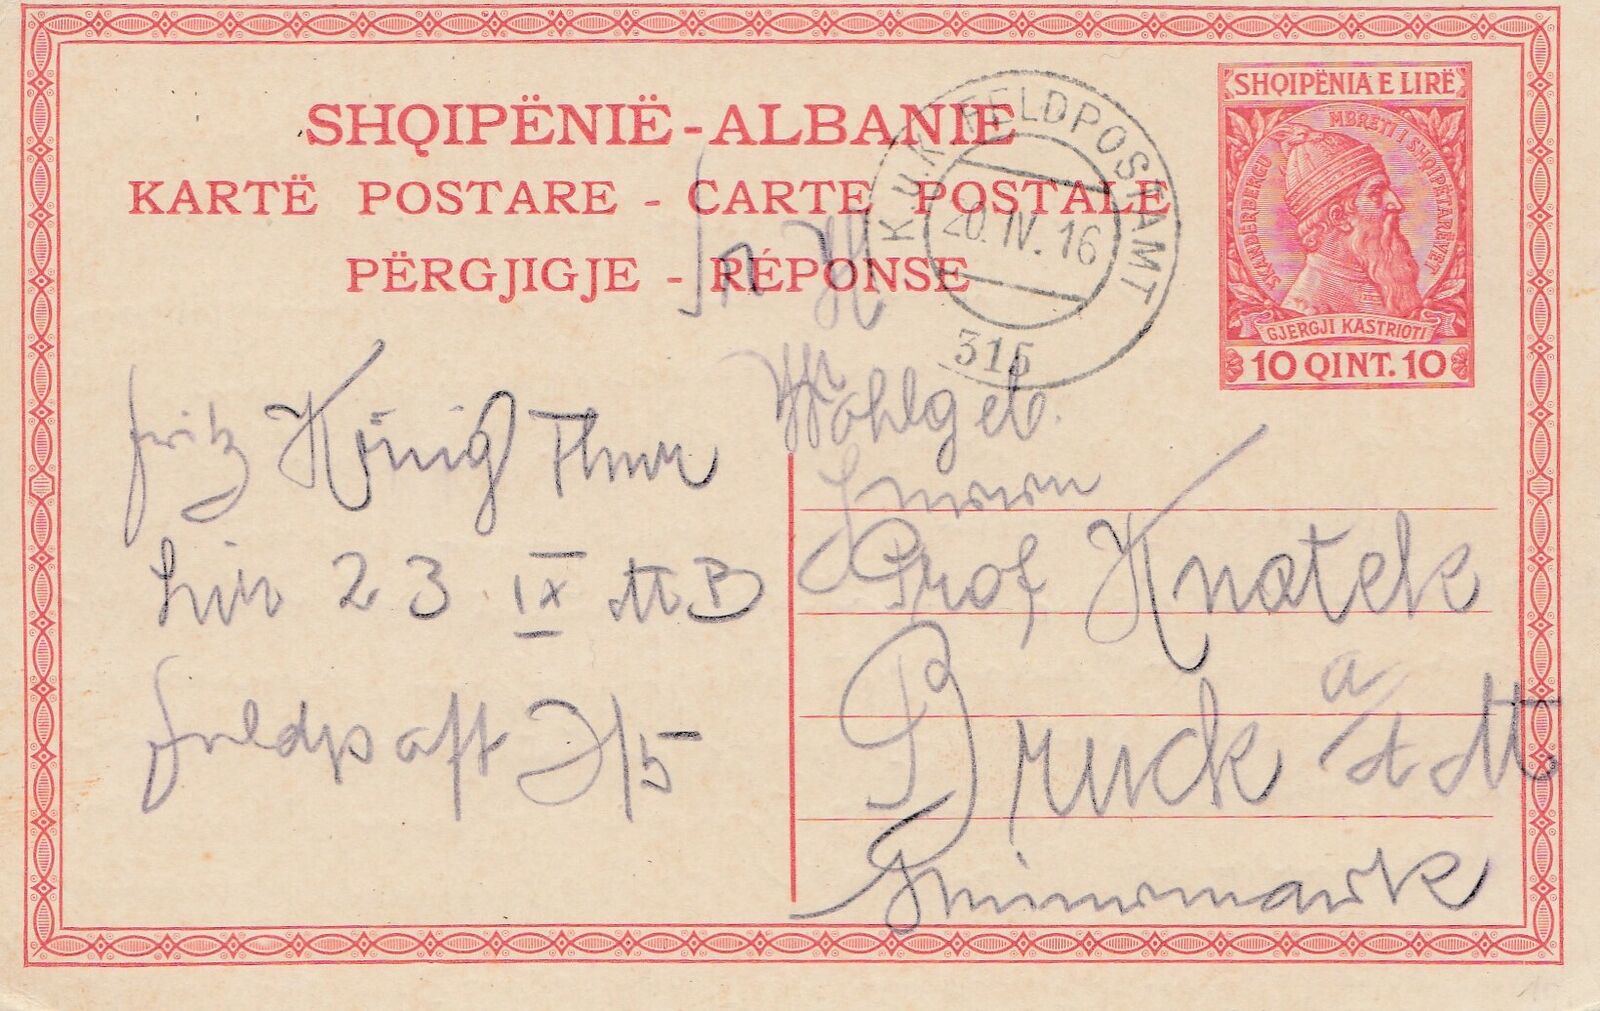 SHQIPËNIË - ALBANIE
KARTË POSTARE - CARTE POSTALE
PËRGJIGJE - RÉPONSE
K.u.K. FELDPOSTAMT
20. IV. 16
315
SHQIPËNIA E LIRË
SKANDERBERGU MBRETI I SHQIPETARËVET
GJERGJI KASTRIOTI
10 QINT. 10
Fritz König
23 IX MB
Feldpost 315
Wohlgeb.
Herrn
Prof Knotek
Bruck a/d Mur
Steiermark